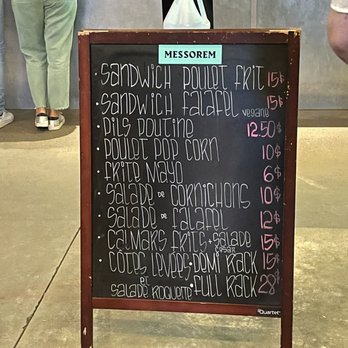 MESSOREM
• SANDWICH POULET FRIT 15$
• SANDWICH FALAFEL VEGANE 15$
• PILS POUTINE 12.50$
• POULET POP CORN 10$
• FRITE MAYO 6$
• SALADE DE CORNICHONS 10$
• SALADE DE FALAFEL 12$
• CALMARS FRITS + SALADE CESAR 15$
• CÔTES LEVÉES • DEMI RACK 15$
ET SALADE ROQUETTE • FULL RACK 28$
Quartet